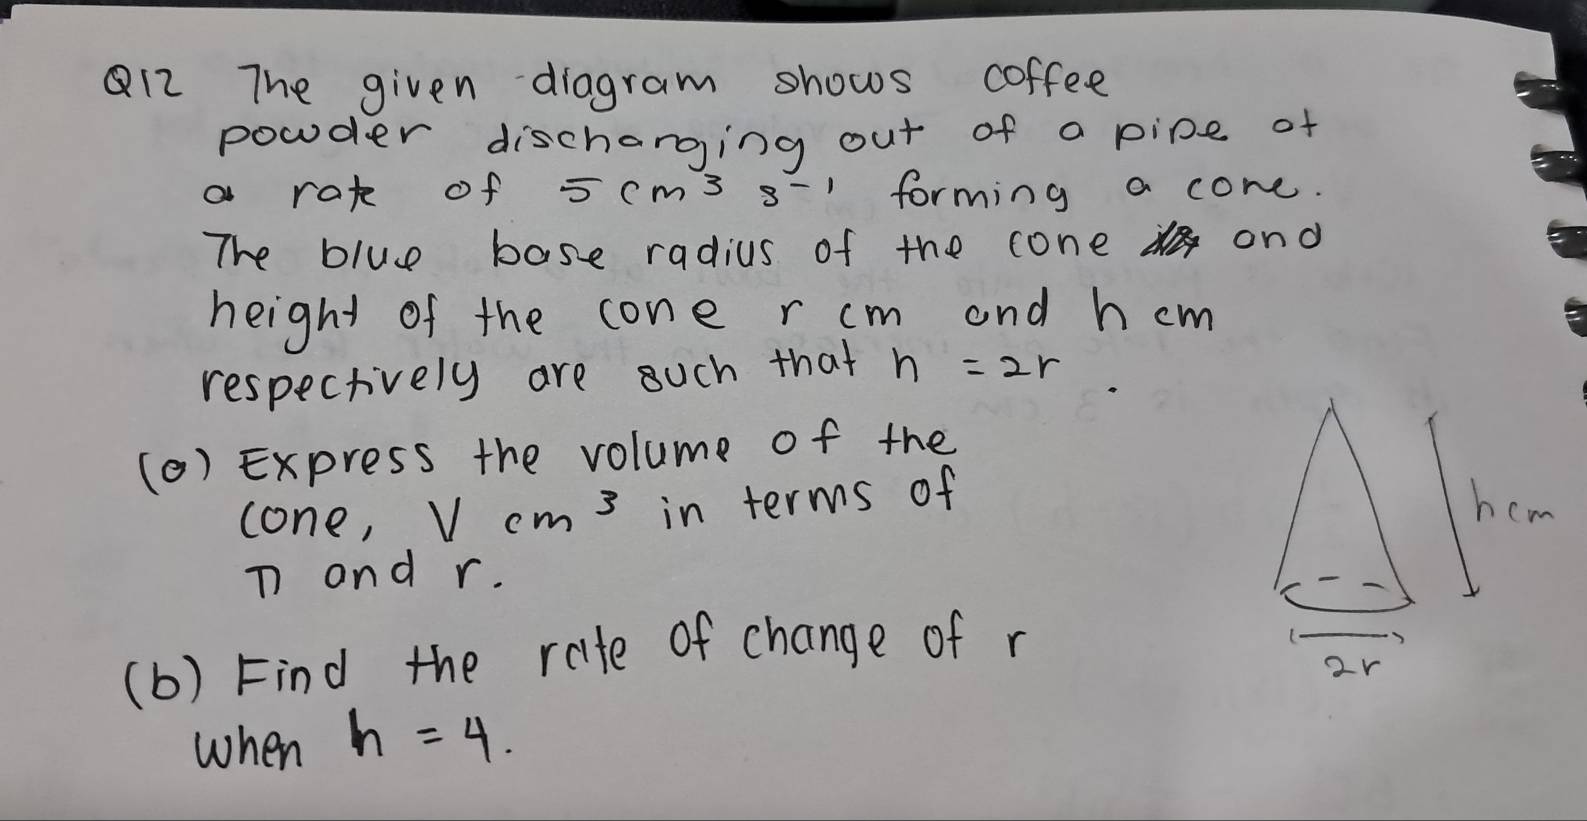 Q12 The given diagram shows coffee
powder discharging out of a pipe at
a rate of 5 cm³ s⁻¹ forming a cone.
The blue base radius of the cone and
height of the cone r cm and h cm
respectively are such that h = 2r.
(a) Express the volume of the
cone, V cm³ in terms of
π and r.
h cm
2r
(b) Find the rate of change of r
when h = 4.